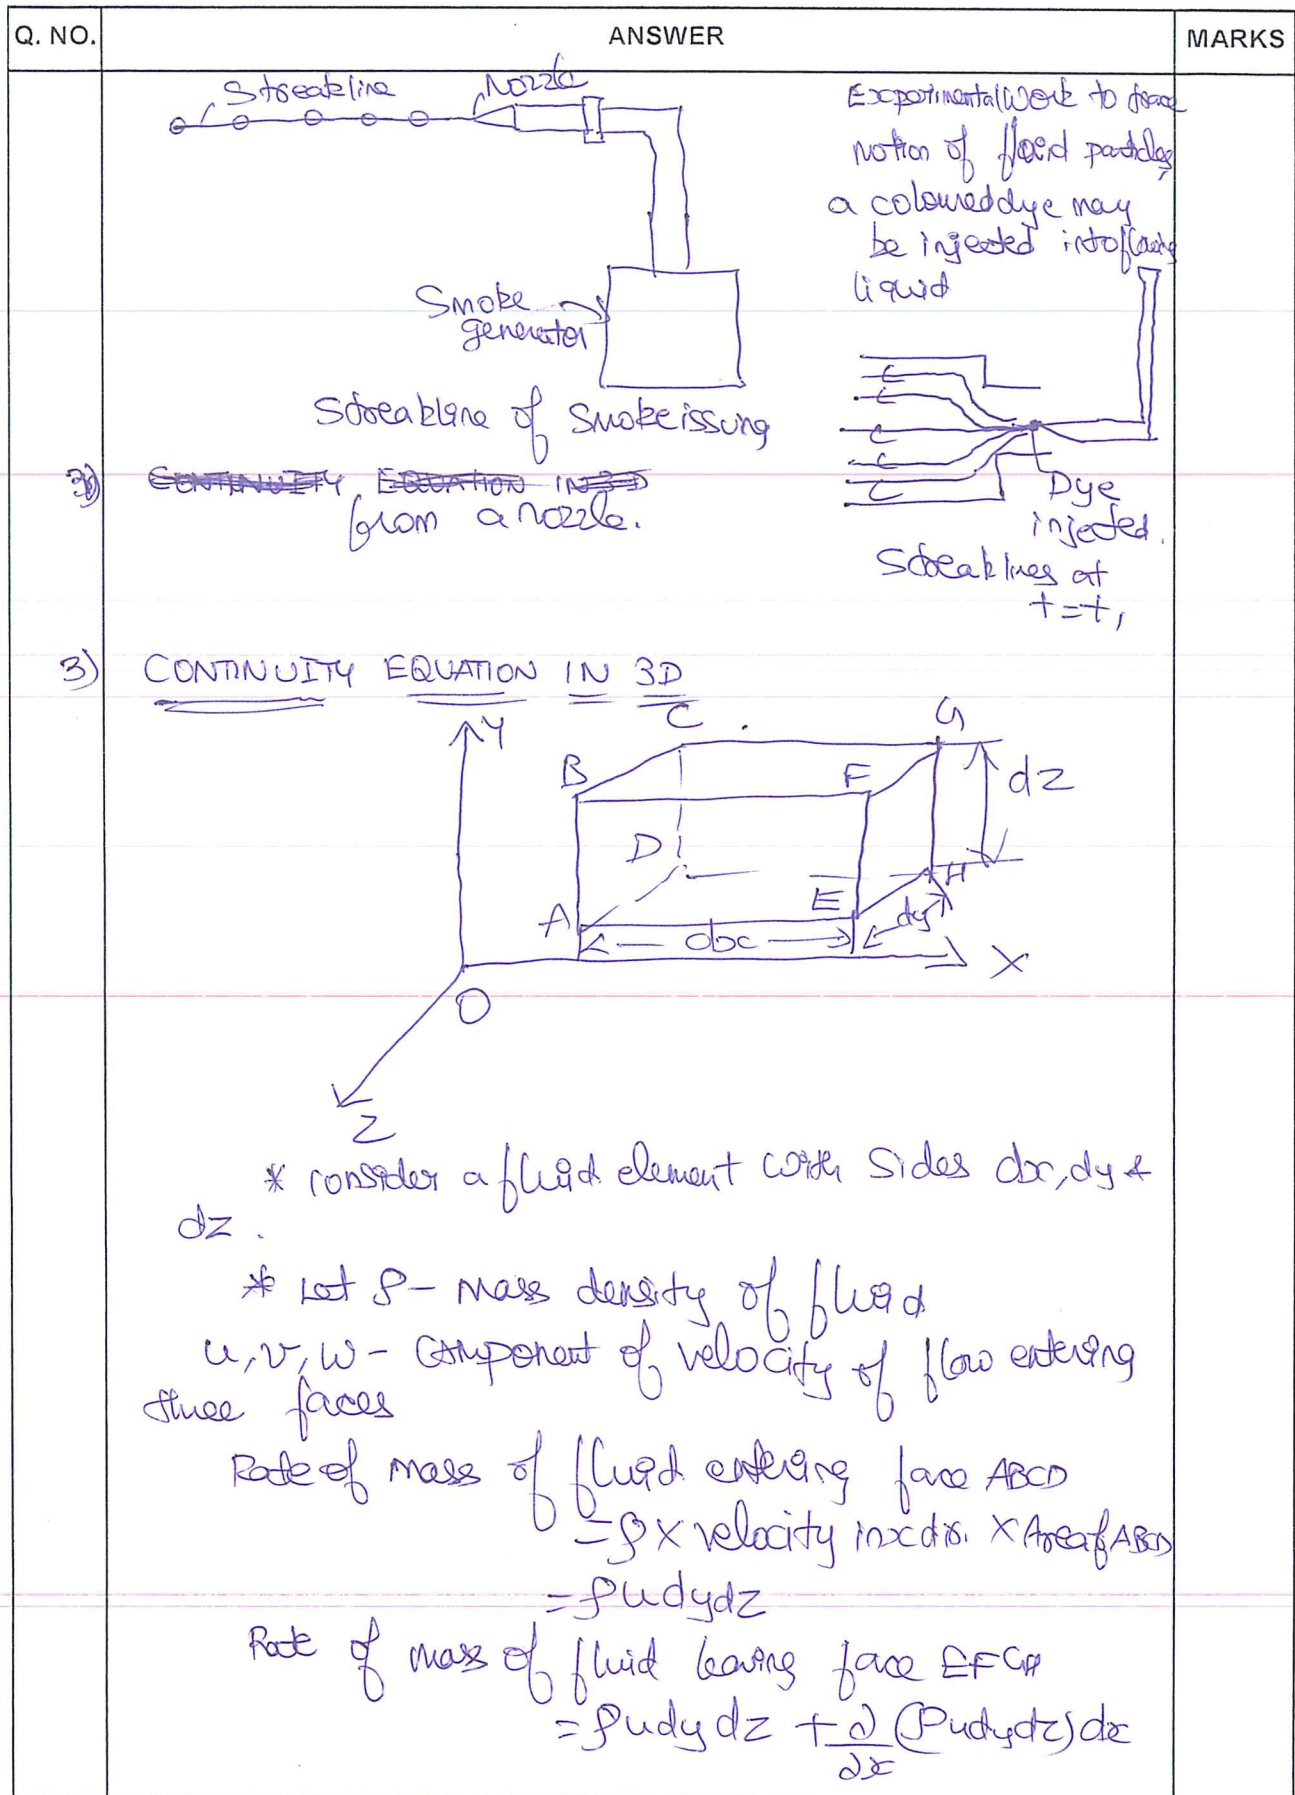 Q. NO. ANSWER MARKS
Streakline Nozzle
Smoke
generator
Streakline of Smoke issung
from a nozzle.
Experimental Work to trace
motion of fluid particles,
a coloured dye may
be injected into flowing
liquid
Dye
injected.
Streaklines at
t=t,
3) CONTINUITY EQUATION IN 3D
3) CONTINUITY EQUATION IN 3D
Y
C G
B F dz
D
H
A E
dx dy
X
O
Z
* consider a fluid element with sides dx, dy &
dz.
* Let ρ - mass density of fluid
u, v, w - component of velocity of flow entering
three faces
Rate of mass of fluid entering face ABCD
= ρ x velocity in x dir. x Area of ABCD
= ρudydz
Rate of mass of fluid leaving face EFGH
= ρudydz + ∂/∂x (ρudydz) dx